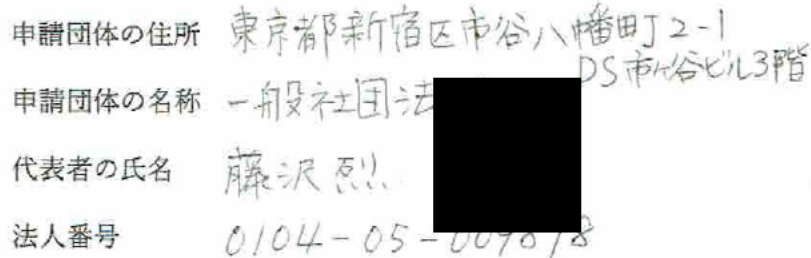 申請団体の住所 東京都新宿区市谷八幡町2-1
DS市ヶ谷ビル3階
申請団体の名称 一般社団法
代表者の氏名 藤沢烈
法人番号 0104-05-009878